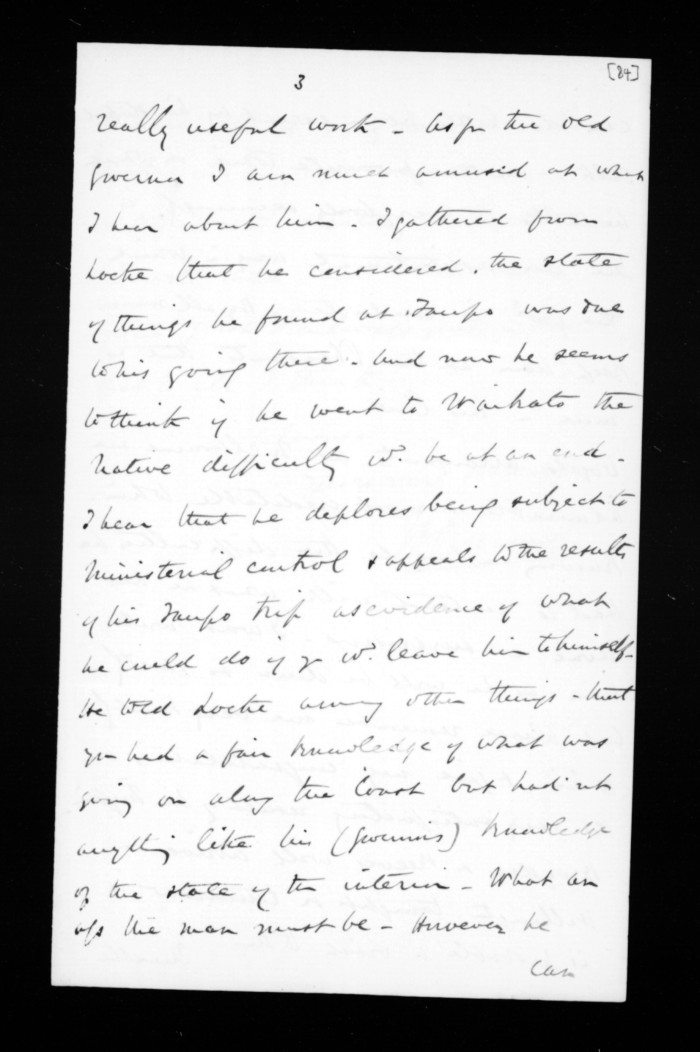 3
[84]
really useful work - As for the old
Governor I am much amused at what
I hear about him. I gathered from
Locke that he considered. the state
of things he found at Taupo was due
to his going there. - and now he seems
to think if he went to Waikato the
Native difficulty wd. be at an end -
I hear that he deplores being subject to
Ministerial control & appeals to the results
of his Taupo trip as evidence of what
he could do if you wd. leave him to himself -
He told Locke among other things - that
you had a fair knowledge of what was
going on along the Coast but had not
anything like his (Governors) knowledge
of the state of the interior - What an
ass the man must be - However he
can